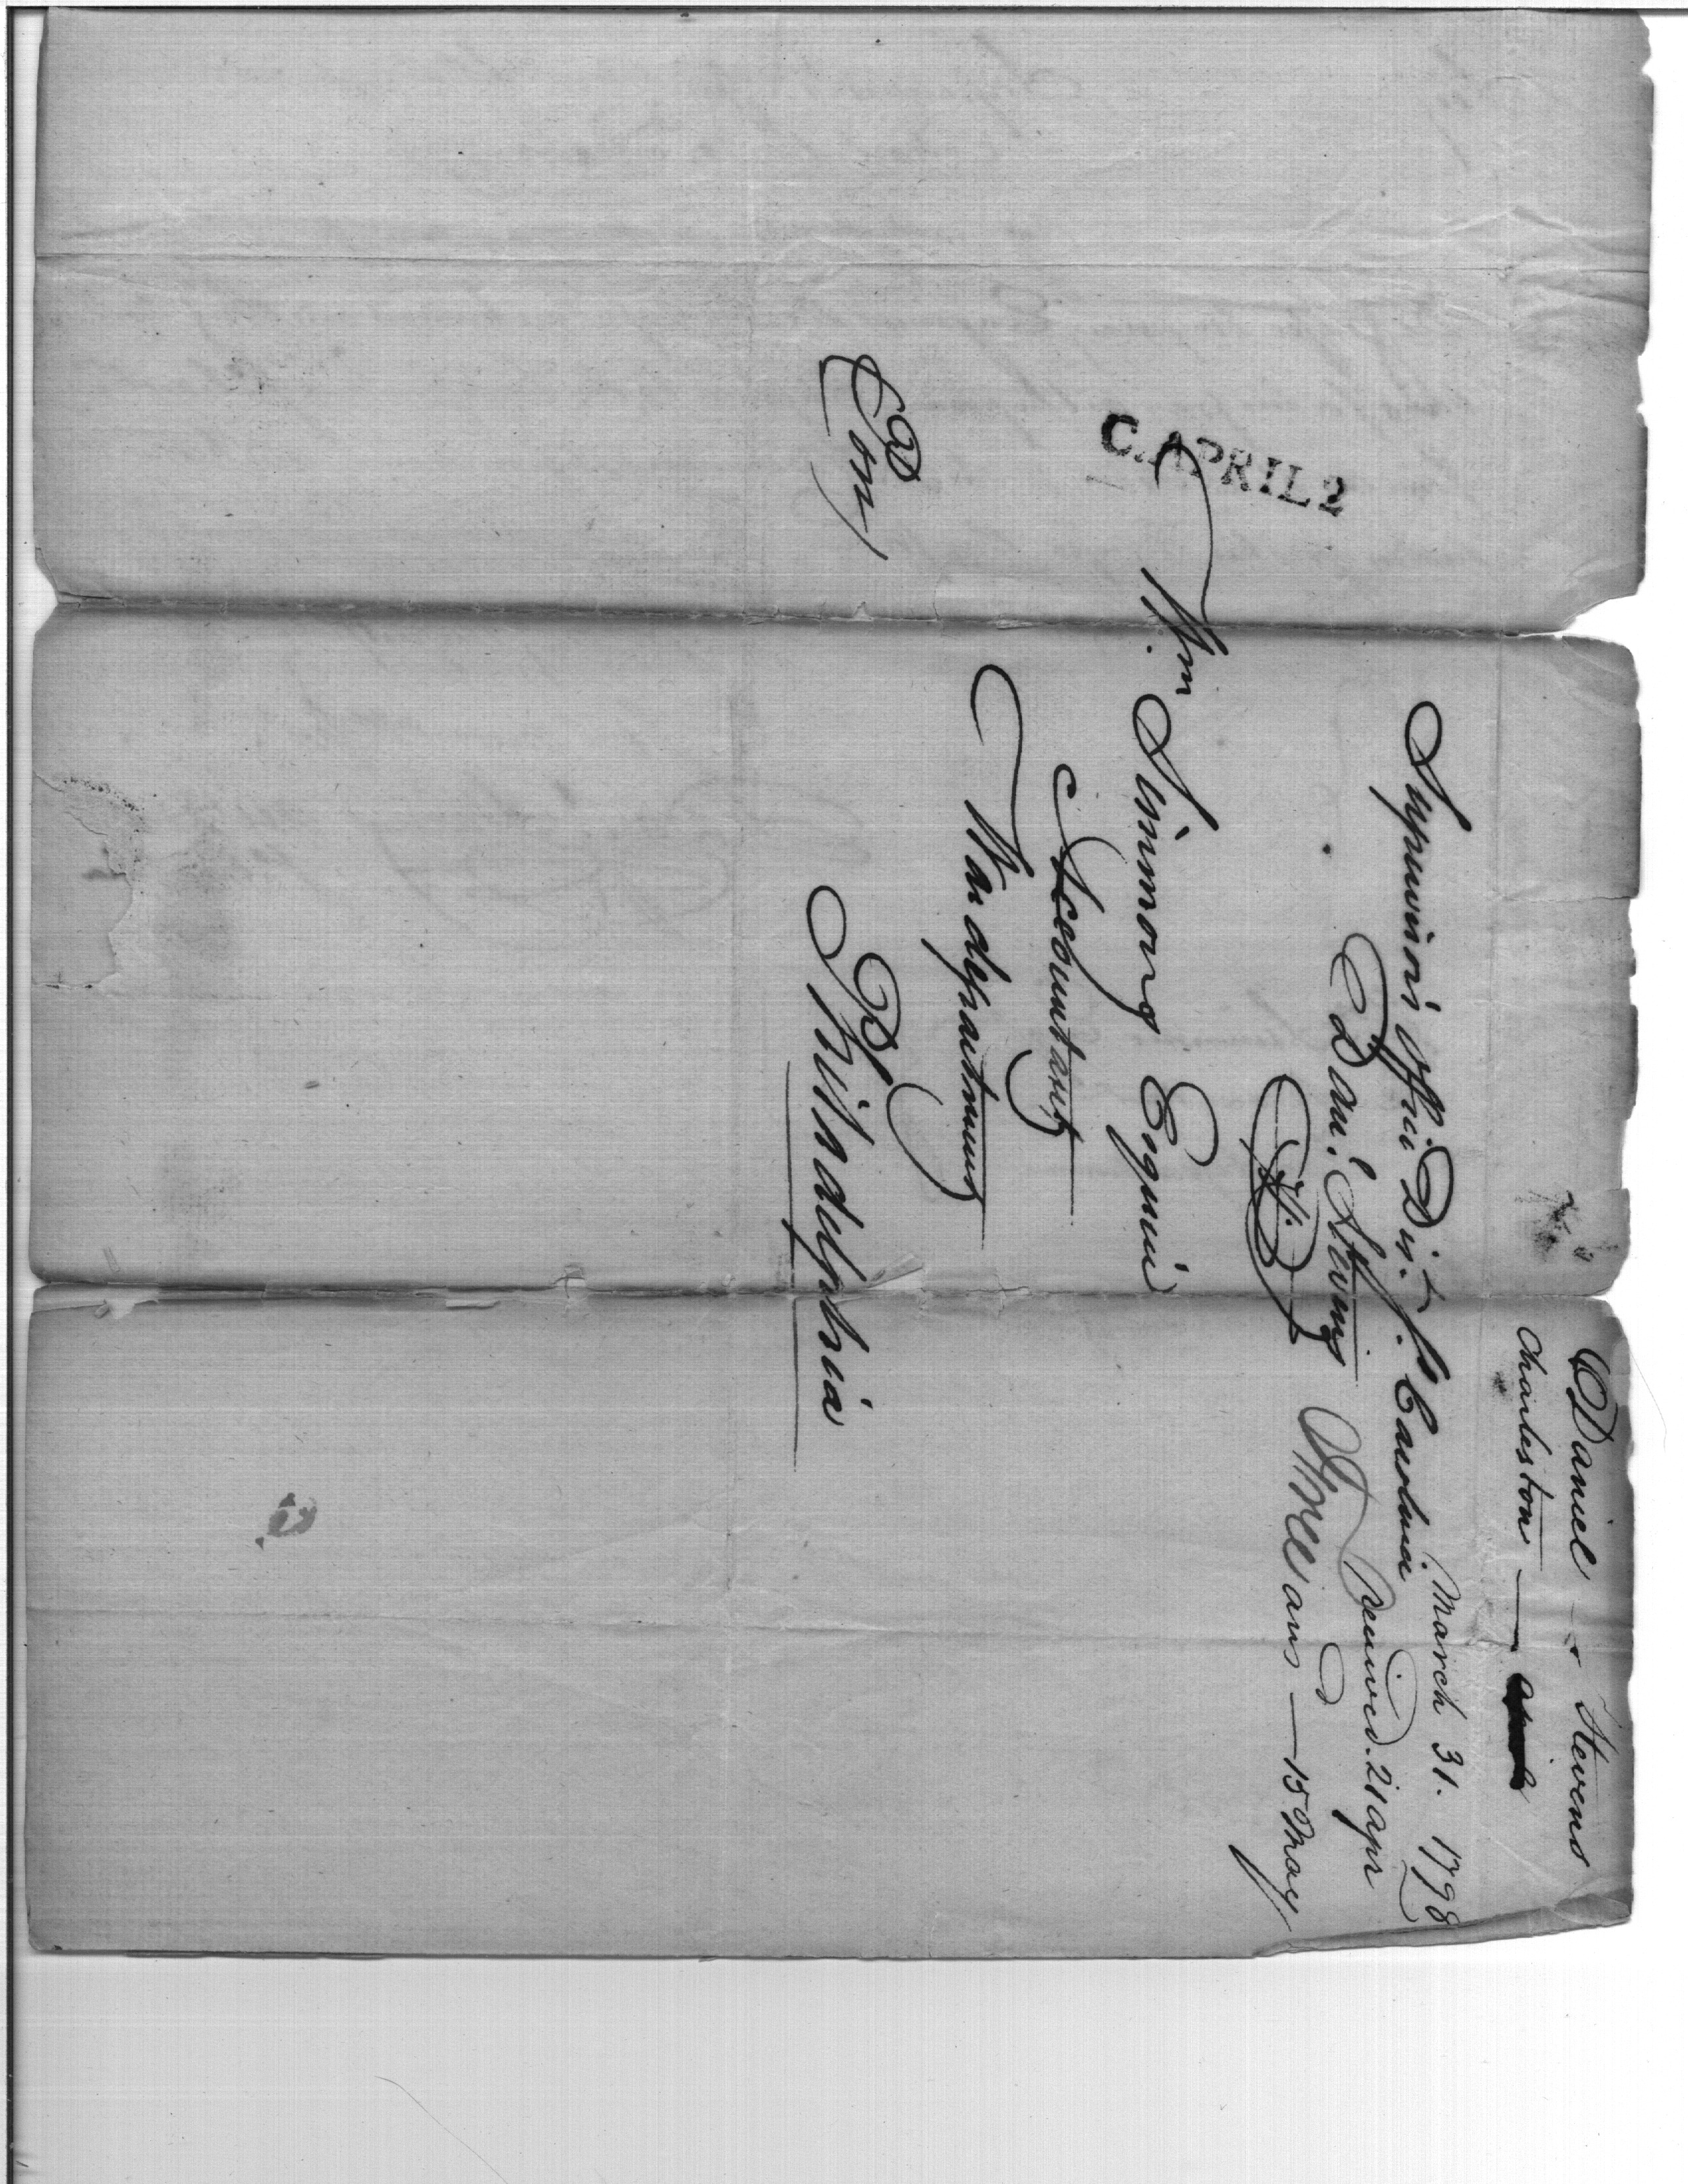 Daniel Stevens
Charleston —
March 31. 1798
Received. 21 apr
ans — 15 May
Supervisor's Office Dist. S. Carolina
Danl. Stevens
C. APRIL 2
Wm Simmons Esquire
Accountant
War department
Philadelphia